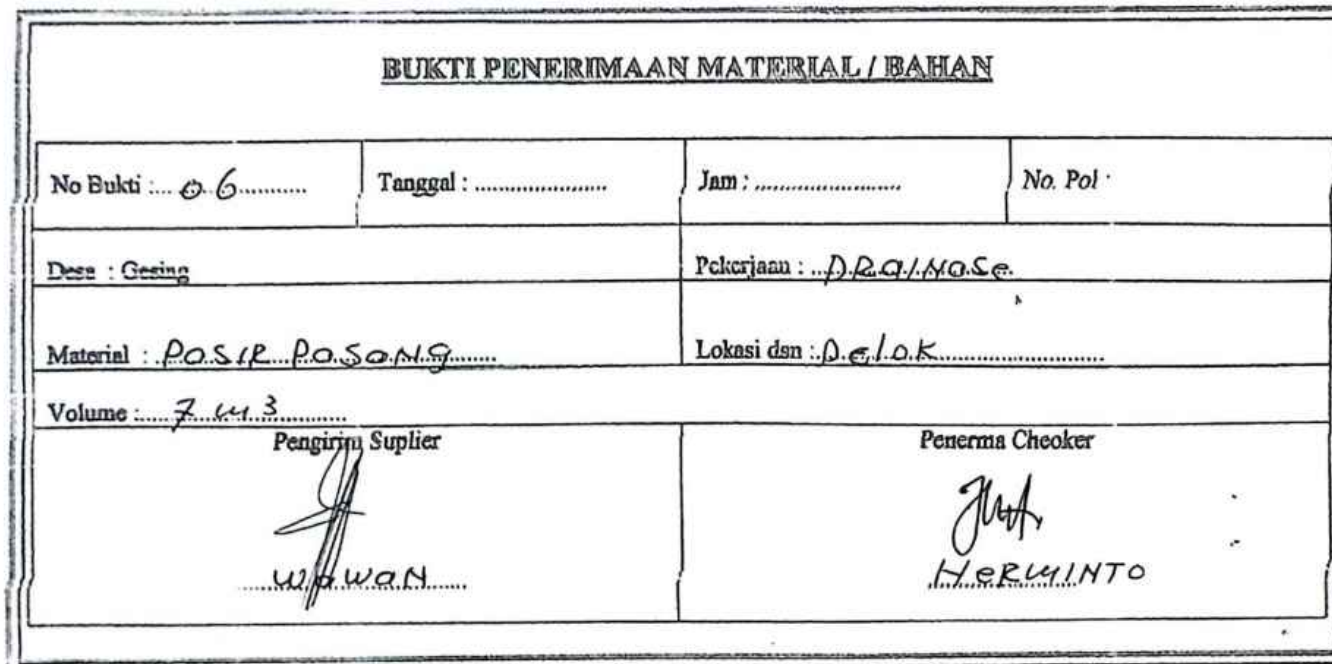 BUKTI PENERIMAAN MATERIAL / BAHAN
No Bukti : 06 Tanggal : Jam : No. Pol :
Desa : Gesing Pekerjaan : DRaINase
Material : PaSIR PaSaNg Lokasi dsn : Delok
Volume : 7 m3
Pengirim Suplier Penerma Cheoker
WaWaN HeRMINTO